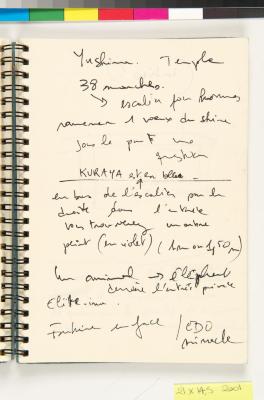 Yushima. Temple
38 marches.
→ escalier pour hommes
ramener 1 voeux du shine
KURAYA est en bleu
en bas de l'escalier par la
droite dans l'entrée
vous trouverez un arbre
peint (en violet) (1m ou 1,50 m)
Un animal → éléphant
derrière l'entrée privée
Fontaine en face / EDO
miracle
21 X 14,5 2001